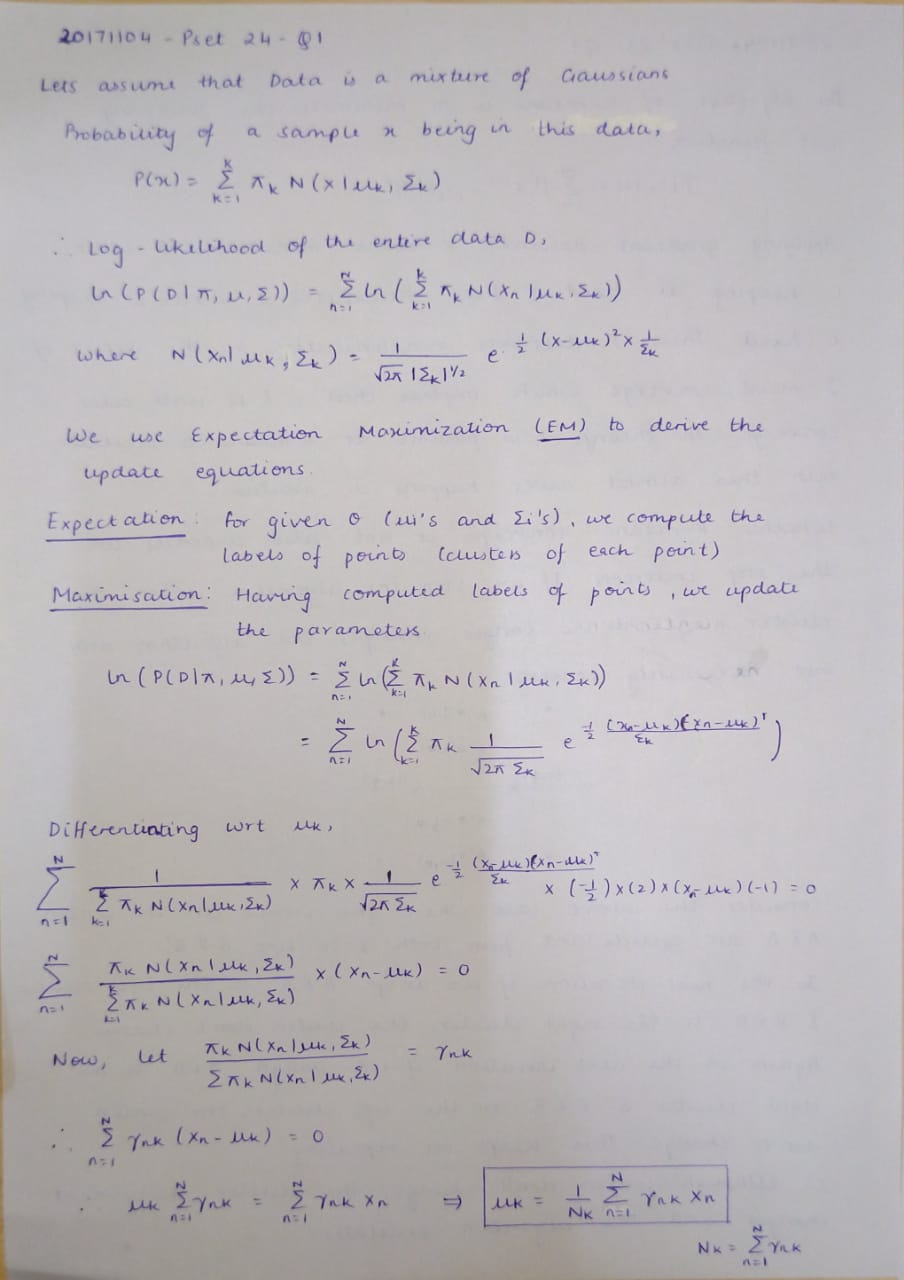 20171104 - Pset 24 - Q1
Lets assume that Data is a mixture of Gaussians
Probability of a sample x being in this data,
P(x) = Σ_{k=1}^{K} π_k N(x | μ_k, Σ_k)
∴ Log - likelihood of the entire data D,
ln (P(D | π, μ, Σ)) = Σ_{n=1}^{N} ln ( Σ_{k=1}^{K} π_k N(x_n | μ_k, Σ_k))
where N(x_n | μ_k, Σ_k) = 1/(√2π |Σ_k|^{1/2}) e^{-1/2 (x-μ_k)^2 × 1/Σ_k}
We use Expectation Maximization (EM) to derive the
update equations.
Expectation : for given θ (μi's and Σi's), we compute the
labels of points (clusters of each point)
Maximisation : Having computed labels of points, we update
the parameters
ln (P(D | π, μ, Σ)) = Σ_{n=1}^{N} ln ( Σ_{k=1}^{K} π_k N(x_n | μ_k, Σ_k))
= Σ_{n=1}^{N} ln ( Σ_{k=1}^{K} π_k 1/(√2π Σ_k) e^{-1/2 (x_n-μ_k)(x_n-μ_k)^T/Σ_k} )
Differentiating wrt μ_k,
Σ_{n=1}^{N} 1/(Σ_{k=1}^{K} π_k N(x_n | μ_k, Σ_k)) × π_k × 1/(√2π Σ_k) e^{-1/2 (x_n-μ_k)(x_n-μ_k)^T/Σ_k} × (-1/2) × (2) × (x_n-μ_k)(-1) = 0
Σ_{n=1}^{N} π_k N(x_n | μ_k, Σ_k)/(Σ_{k=1}^{K} π_k N(x_n | μ_k, Σ_k)) × (x_n - μ_k) = 0
Now, let π_k N(x_n | μ_k, Σ_k)/(Σ π_k N(x_n | μ_k, Σ_k)) = γ_nk
∴ Σ_{n=1}^{N} γ_nk (x_n - μ_k) = 0
∴ μ_k Σ_{n=1}^{N} γ_nk = Σ_{n=1}^{N} γ_nk x_n ⇒ μ_k = 1/N_k Σ_{n=1}^{N} γ_nk x_n
N_k = Σ_{n=1}^{N} γ_nk